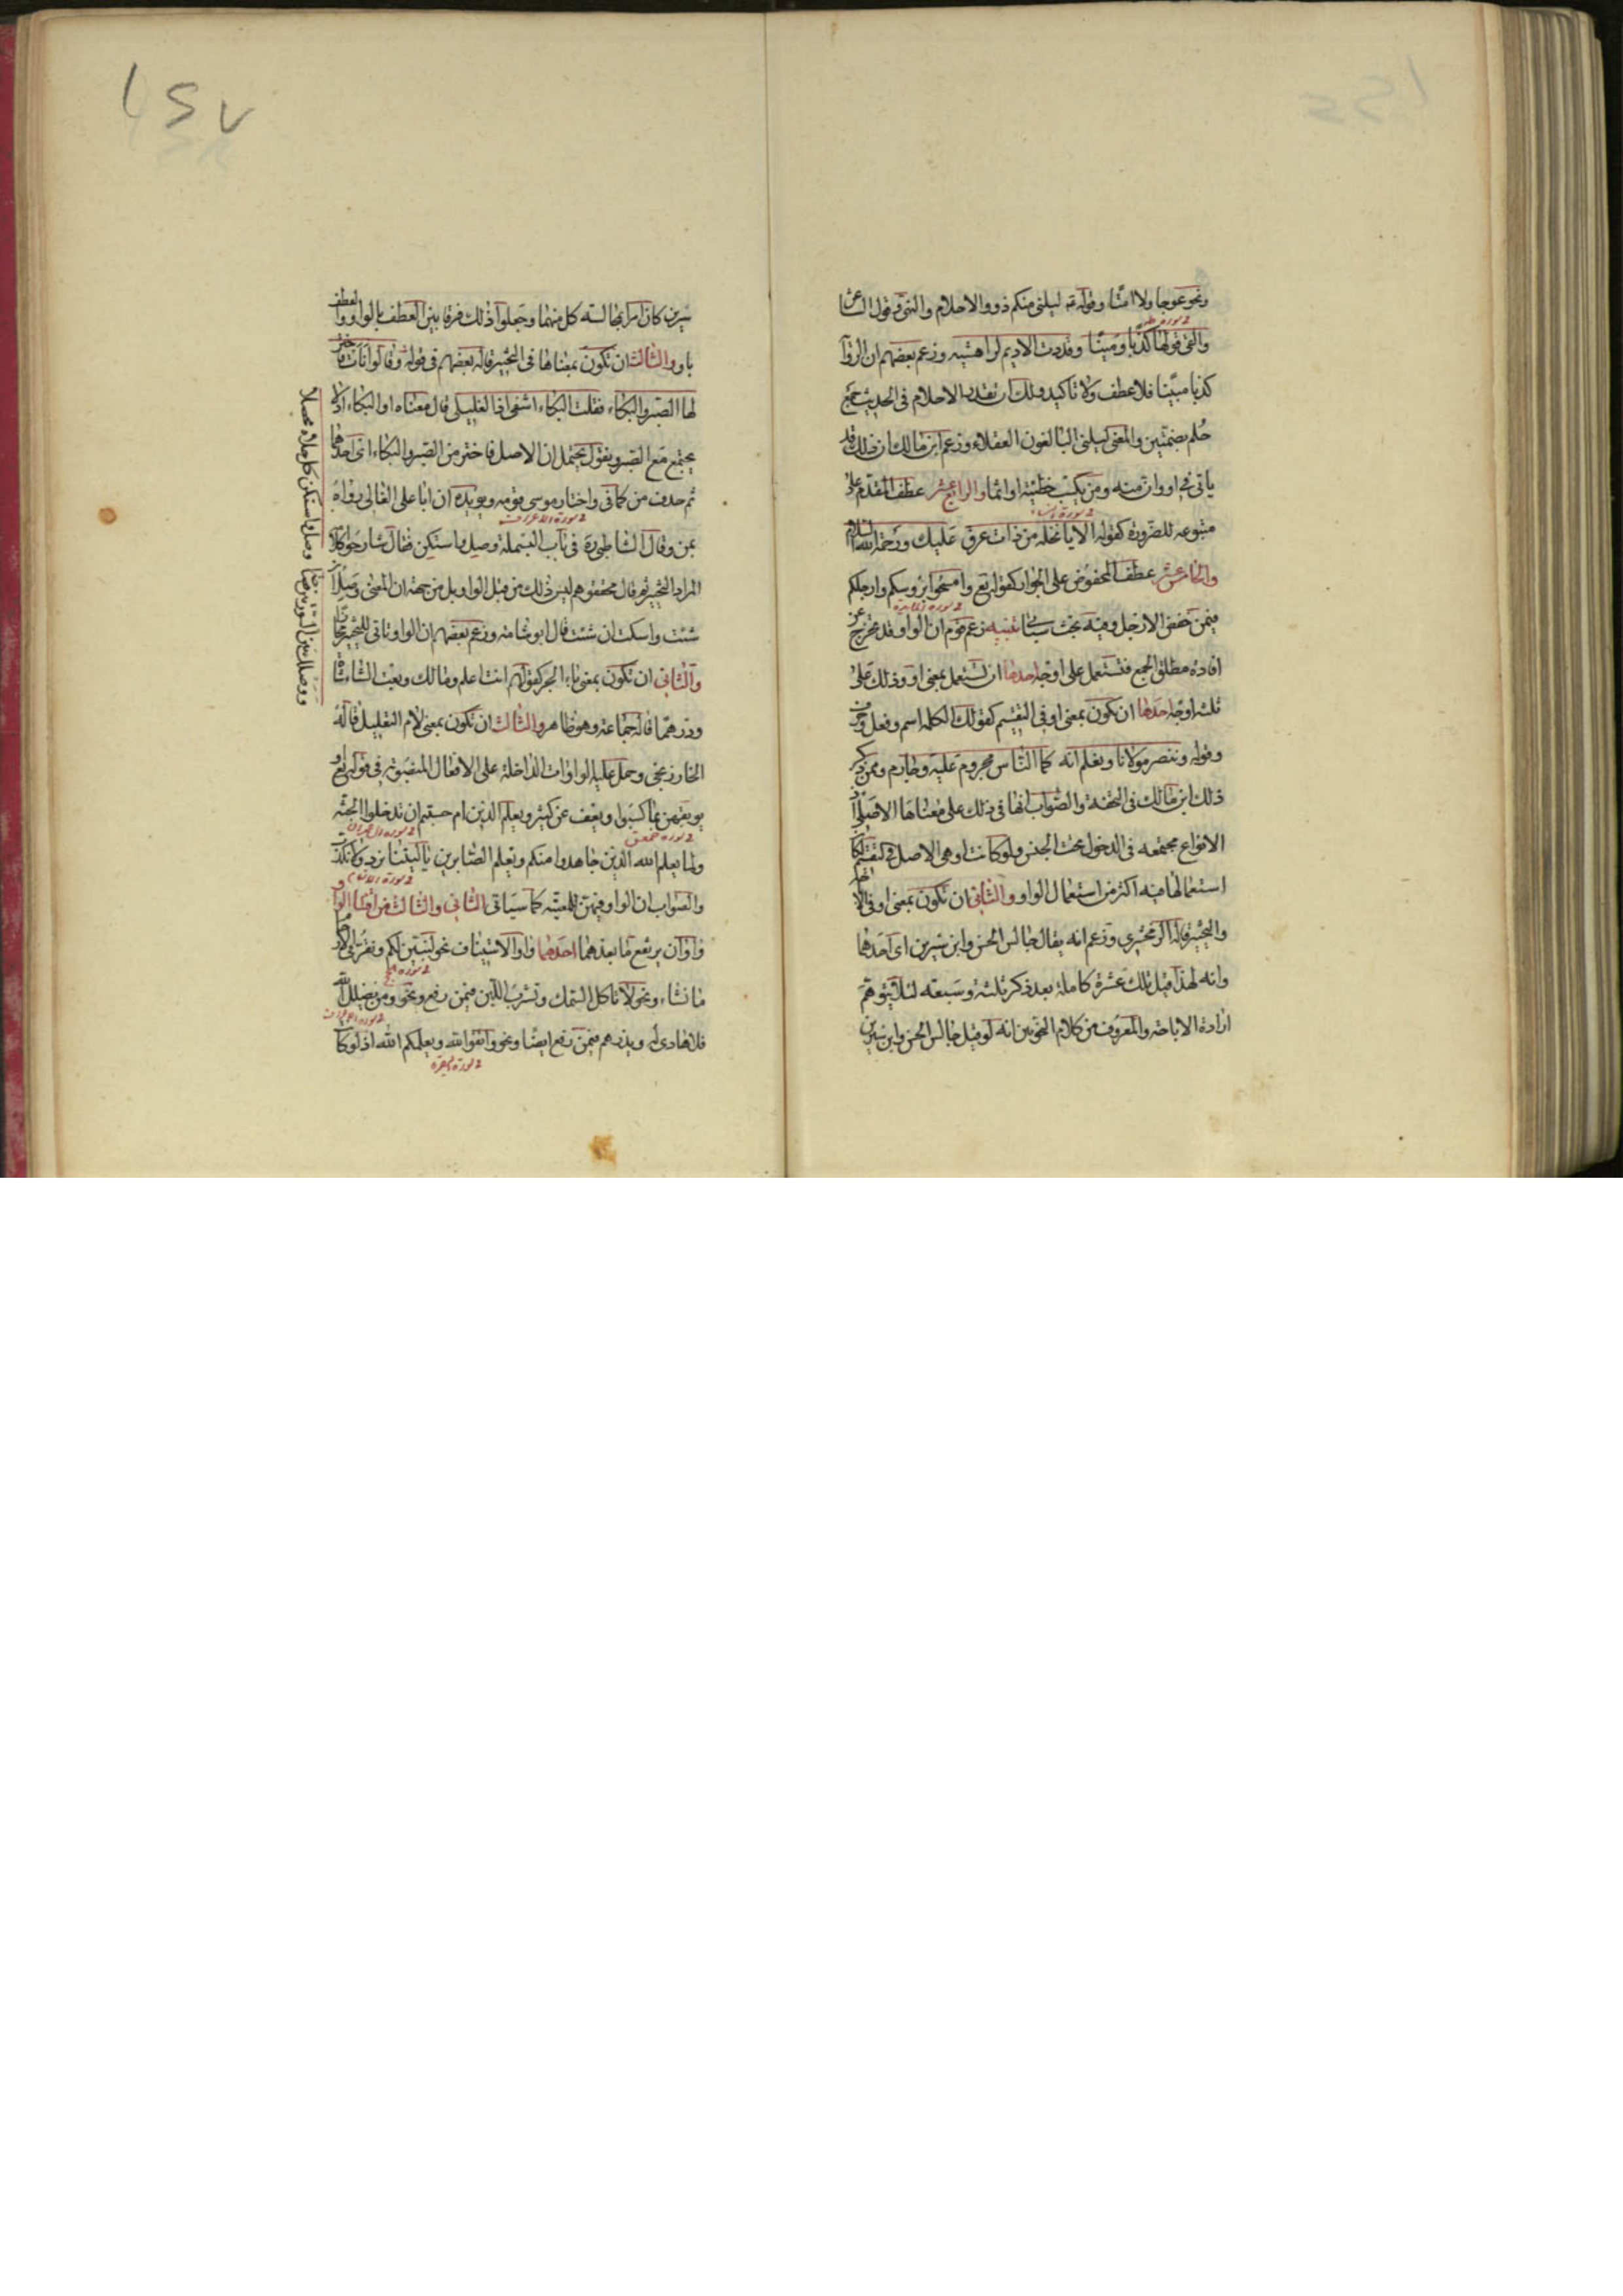 ونحو عوجا ولا امتا وقوله ع‍ ليلنى منكم ذووا الاحلام والنهى وقول الشاعر
والفى قولها كذبا ومينا وقددت الاديم لراهشيه وزعم بعضهم ان الرواية
كذبا مبينا فلا عطف ولا تاكيد ولك ان تقدر الاحلام فى الحديث جمع
حلم بضمتين والمعنى ليلنى البالغون العقلاء وزعم ابن مالك ان ذلك قد
ياتى فى او وان منه ومن يكسب خطيئة او اثما والرابع عشر عطف المقدم على
متبوعه للضرورة كقوله الا يا نخلة من ذات عرق عليك ورحمة الله السلام
والخامس عشر عطف المخفوض على الجوار كقوله تع وامسحوا برؤسكم وارجلكم
فيمن خفض الارجل وفيه بحث سياتى تنبيه زعم قوم ان الواو قد تخرج عن
افادة مطلق الجمع فتستعمل على اوجه احدها ان تستعمل بمعنى او وذلك على
ثلثة اوجه احدها ان تكون بمعنى او فى التقسيم كقولك الكلمة اسم وفعل وحرف
وقوله وننصر مولانا ونعلم انه كما الناس مجروم عليه وجارم وممن ذكر
ذلك ابن مالك فى التحفة والصواب انها فى ذلك على معناها الاصلى اذ
الانواع مجتمعة فى الدخول تحت الجنس ولو كانت او هى الاصل فى التقسيم لكان
استعمالها فيه اكثر من استعمال الواو والثانى ان تكون بمعنى او فى الاباحة
والتخيير قاله الزمخشرى وزعم انه يقال جالس الحسن وابن سيرين اى احدهما
وانه لهذا قيل تلك عشرة كاملة بعد ذكر ثلثة وسبعة لئلا يتوهم
ارادة الاباحة والمعروف من كلام النحويين انه لو قيل جالس الحسن وابن سيرين
سيرين كان امرا بمجالسة كل منهما وجعلوا ذلك فرقا بين العطف بالواو والعطف
باو والثالث ان تكون بمعناها فى التخيير قاله بعضهم فى قوله وقالوا نأت فاختر
لها الصبر والبكاء فقلت البكاء اشفى اذا لغليلى قال معناه او البكاء اذ لا
يجتمع مع الصبر ونقول يحتمل ان الاصل فاختر من الصبر والبكاء اى احدهما
ثم حذف من كما فى واختار موسى قومه ويؤيده ان ابا على القالى رواه
بمن وقال الشاطبى ره فى باب البسملة وصل واسكتن فقال شارحوا كلامه
المراد التخيير ثم قال محققوهم ليس ذلك من قبل الواو بل من جهة ان المعنى وصل ان
شئت واسكت ان شئت قال ابو شامة وزعم بعضهم ان الواو تاتى للتخيير مجازا
والثانى ان تكون بمعنى باء الجر كقولهم انت اعلم ومالك وبعت الشاء شاة
ودرهما قاله جماعة وهو ظاهر والثالث ان تكون بمعنى لام التعليل قاله
الخارزنجى وحمل عليه الواوات الداخلة على الافعال المنصوبة فى قوله تع او
يوبقهن بما كسبوا ويعف عن كثير ويعلم الذين ام حسبتم ان تدخلوا الجنة
ولما يعلم الله الذين جاهدوا منكم ويعلم الصابرين يا ليتنا نرد ولا نكذب
والصواب ان الواو فيهن للمعية كما سياتى الثانى والثالث من اقسام الواو
واوان يرتفع ما بعدهما احدهما واو الاستيناف نحو لنبين لكم ونقر فى الارحام
ما نشاء ونحو لا تاكل السمك وتشرب اللبن فيمن رفع ونحو ومن يضلل الله
فلا هادى له ويذرهم فيمن رفع ايضا ونحو واتقوا الله ويعلمكم الله اذ لو كا